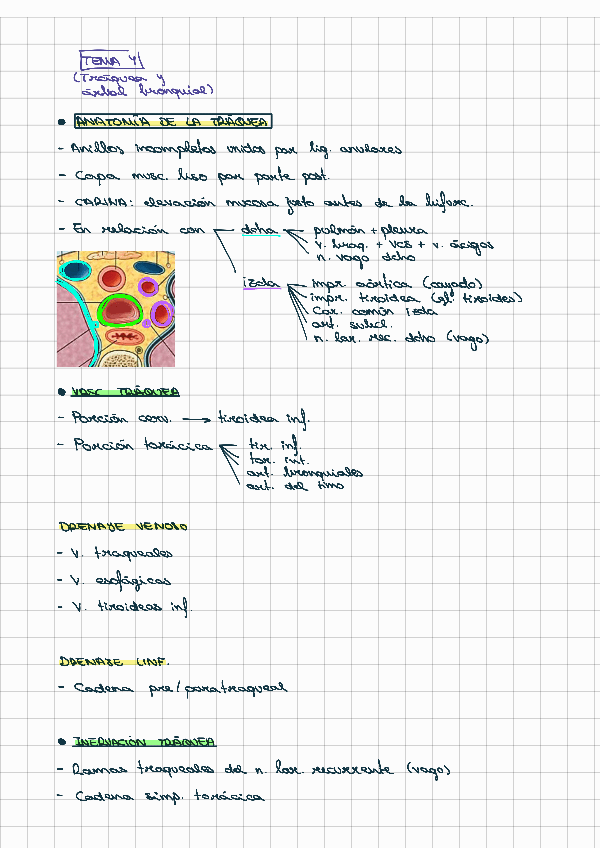 TEMA 4
(Tráquea y
árbol bronquial)
• ANATOMÍA DE LA TRÁQUEA
- Anillos incompletos unidos por lig. anulares
- Capa musc. liso por parte post.
- CARINA: elevación mucosa justo antes de la bifurc.
- En relación con dcha pulmón + pleura
v. braq. + VCS + v. ácigos
n. vago dcho
izda impr. aórtica (cayado)
impr. tiroidea (gl. tiroides)
Car. común izda
art. subcl.
n. lar. rec. dcho (vago)
• VASC TRÁQUEA
- Porción cerv. → tiroidea inf.
- Porción torácica tir. inf.
tor. int.
art. bronquiales
art. del timo
DRENAJE VENOSO
- V. traqueales
- V. esofágicas
- V. tiroideas inf.
DRENAJE LINF.
- Cadena pre/paratraqueal
• INERVACIÓN TRÁQUEA
- Ramas traqueales del n. lar. recurrente (vago)
- Cadena simp. torácica